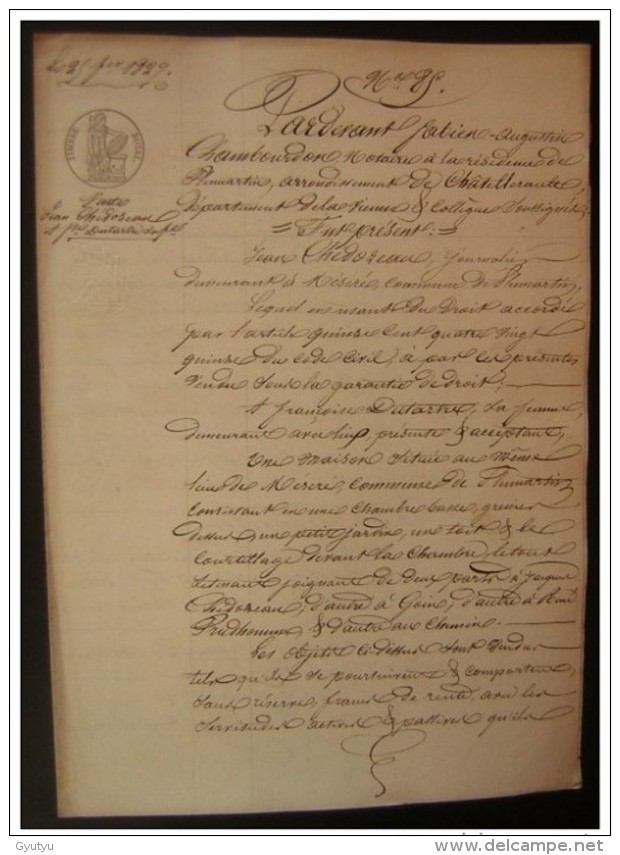 Le 25 1829.
No 85.
Pardevant fabien-augustin
Chambourdon Notaire à la résidence de
Plumartin, arrondissement de Châtellerault,
département de la Vienne & Collègue Soussignés
= Fut présent. =
Jean Chedozeau, journalier
demeurant à Méseré, commune de Plumartin,
Lequel en usant du Droit accordé
par l'article quinze cent quatre vingt
quinze du Code Civil, à par les présentes
vendu sous la garantie de droit;
A françoise Dutartre, sa femme,
demeurant avec lui, présente & acceptante,
Une Maison située au même
lieu de Meseré, commune de Plumartin,
consistant en une chambre basse, grenier
dessus, un petit jardin, un toit & le
Courtillage devant la Chambre, le tout
tenant joignant de deux parts à Jacques
Chedozeau, d'autre à Goin, d'autre à René
Prudhomme, & d'autre au Chemin.
Les objets ci-dessus sont vendus
tels qu'ils se poursuivent & comportent,
sans réserve, francs de rente, avec les
servitudes actives & passives qu'ils
TIMBRE ROYAL
Vente
Jean Chedozeau
à fse Dutartre sa fe
Gyutyu
www.delcampe.net